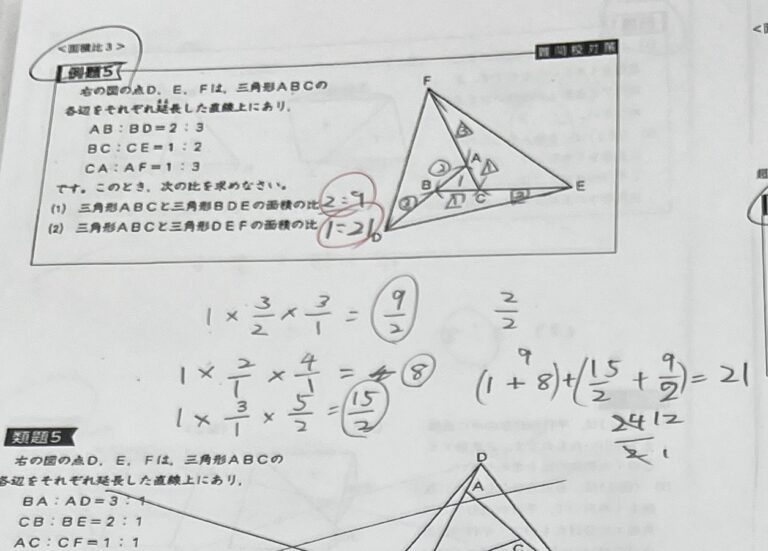 <面積比3>
難関校対策
例題5
右の図の点D、E、Fは、三角形ABCの
各辺をそれぞれ延長した直線上にあり、
AB:BD=2:3
BC:CE=1:2
CA:AF=1:3
です。このとき、次の比を求めなさい。
(1) 三角形ABCと三角形BDEの面積の比 2:9
(2) 三角形ABCと三角形DEFの面積の比 1:21
F
③
A
② 1
B
E
③ 1 C 2
D
1 × 3/2 × 3/1 = 9/2
2/2
1 × 2/1 × 4/1 = 8
1 × 3/1 × 5/2 = 15/2
9
(1+8)+(15/2+9/2)=21
24/2 12
1
類題5
右の図の点D、E、Fは、三角形ABCの
各辺をそれぞれ延長した直線上にあり、
BA:AD=3:1
CB:BE=2:1
AC:CF=1:1
D
A
C